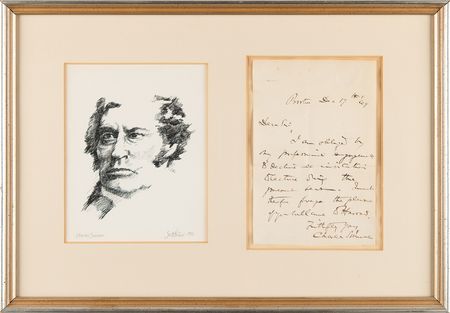 Charles Sumner
Boston Dec 17th '49
Dear Sir,
I am obliged by
my professional engagements
to decline all invitations
to lecture during this
present season. I must
forego the pleasure
of to Harvard.
Faithfully yours,
Charles Sumner